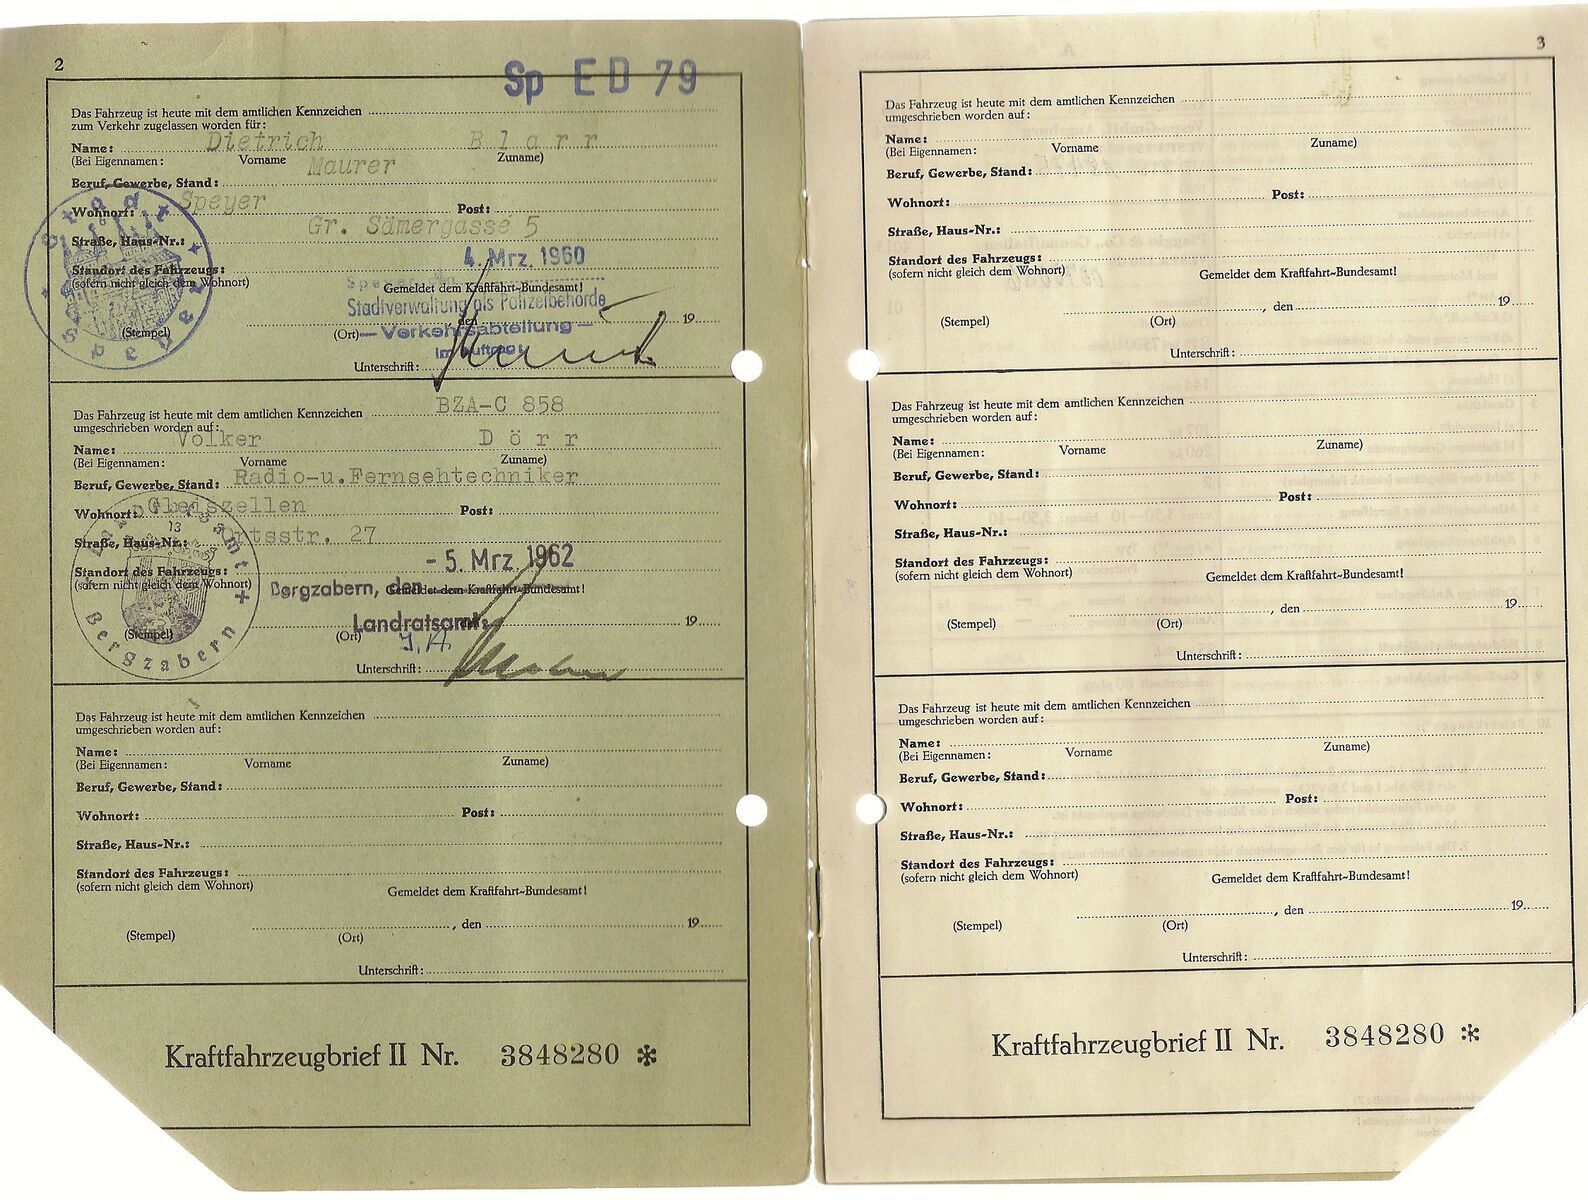 2
Sp ED 79
Das Fahrzeug ist heute mit dem amtlichen Kennzeichen
zum Verkehr zugelassen worden für:
Dietrich Blarr
Name:
(Bei Eigennamen: Vorname Zuname)
Maurer
Beruf, Gewerbe, Stand:
Speyer
Wohnort: Post:
Gr. Sämergasse 5
Straße, Haus-Nr.:
4. Mrz. 1960
Standort des Fahrzeugs:
(sofern nicht gleich dem Wohnort) Gemeldet dem Kraftfahrt-Bundesamt!
Stadtverwaltung als Polizeibehörde
den 19
(Stempel) (Ort) —Verkehrsabteilung—
Im Auftrag:
Unterschrift:
Stadt Speyer
BZA-C 858
Das Fahrzeug ist heute mit dem amtlichen Kennzeichen
umgeschrieben worden auf:
Volker Dörr
Name:
(Bei Eigennamen: Vorname Zuname)
Radio-u.Fernsehtechniker
Beruf, Gewerbe, Stand:
Gleiszellen
Wohnort: Post:
13
Ortsstr. 27
Straße, Haus-Nr.:
- 5. Mrz. 1962
Standort des Fahrzeugs:
(sofern nicht gleich dem Wohnort) Bergzabern, den Gemeldet dem Kraftfahrt-Bundesamt!
Landratsamt: 19
(Stempel) (Ort) I.A.
Unterschrift:
Landratsamt Bergzabern
Das Fahrzeug ist heute mit dem amtlichen Kennzeichen
umgeschrieben worden auf:
Name:
(Bei Eigennamen: Vorname Zuname)
Beruf, Gewerbe, Stand:
Wohnort: Post:
Straße, Haus-Nr.:
Standort des Fahrzeugs:
(sofern nicht gleich dem Wohnort) Gemeldet dem Kraftfahrt-Bundesamt!
, den 19
(Stempel) (Ort)
Unterschrift:
Kraftfahrzeugbrief II Nr. 3848280 *
3
Das Fahrzeug ist heute mit dem amtlichen Kennzeichen
umgeschrieben worden auf:
Name:
(Bei Eigennamen: Vorname Zuname)
Beruf, Gewerbe, Stand:
Wohnort: Post:
Straße, Haus-Nr.:
Standort des Fahrzeugs:
(sofern nicht gleich dem Wohnort) Gemeldet dem Kraftfahrt-Bundesamt!
, den 19
(Stempel) (Ort)
Unterschrift:
Das Fahrzeug ist heute mit dem amtlichen Kennzeichen
umgeschrieben worden auf:
Name:
(Bei Eigennamen: Vorname Zuname)
Beruf, Gewerbe, Stand:
Wohnort: Post:
Straße, Haus-Nr.:
Standort des Fahrzeugs:
(sofern nicht gleich dem Wohnort) Gemeldet dem Kraftfahrt-Bundesamt!
, den 19
(Stempel) (Ort)
Unterschrift:
Das Fahrzeug ist heute mit dem amtlichen Kennzeichen
umgeschrieben worden auf:
Name:
(Bei Eigennamen: Vorname Zuname)
Beruf, Gewerbe, Stand:
Wohnort: Post:
Straße, Haus-Nr.:
Standort des Fahrzeugs:
(sofern nicht gleich dem Wohnort) Gemeldet dem Kraftfahrt-Bundesamt!
, den 19
(Stempel) (Ort)
Unterschrift:
Kraftfahrzeugbrief II Nr. 3848280 *